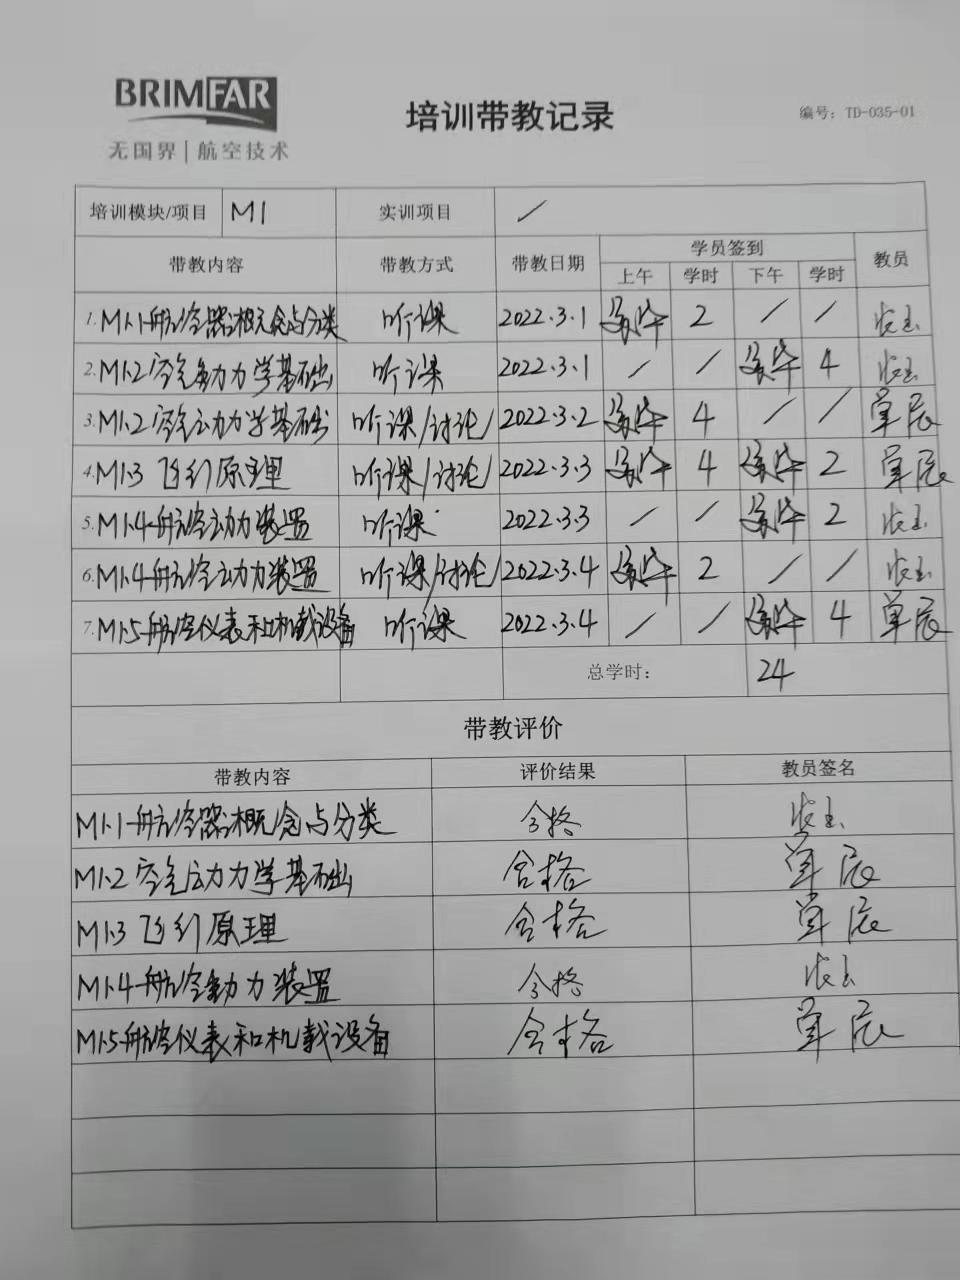 BRIMFAR
无国界|航空技术
培训带教记录
编号：TD-035-01
培训模块/项目 M1 实训项目 /
带教内容 带教方式 带教日期 学员签到 教员
上午 学时 下午 学时
1. M1.1航空器概念与分类 听课 2022.3.1 2 / /
2. M1.2空气动力学基础 听课 2022.3.1 / / 4
3. M1.2空气动力学基础 听课/讨论/ 2022.3.2 4 / / 单辰
4. M1.3飞行原理 听课/讨论/ 2022.3.3 4 2 单辰
5. M1.4航空动力装置 听课 2022.3.3 / / 2
6. M1.4航空动力装置 听课/讨论/ 2022.3.4 2 / /
7. M1.5航空仪表和机载设备 听课 2022.3.4 / / 4 单辰
总学时： 24
带教评价
带教内容 评价结果 教员签名
M1.1航空器概念与分类 合格
M1.2空气动力学基础 合格 单辰
M1.3飞行原理 合格 单辰
M1.4航空動力装置 合格
M1.5航空仪表和机载设备 合格 单辰